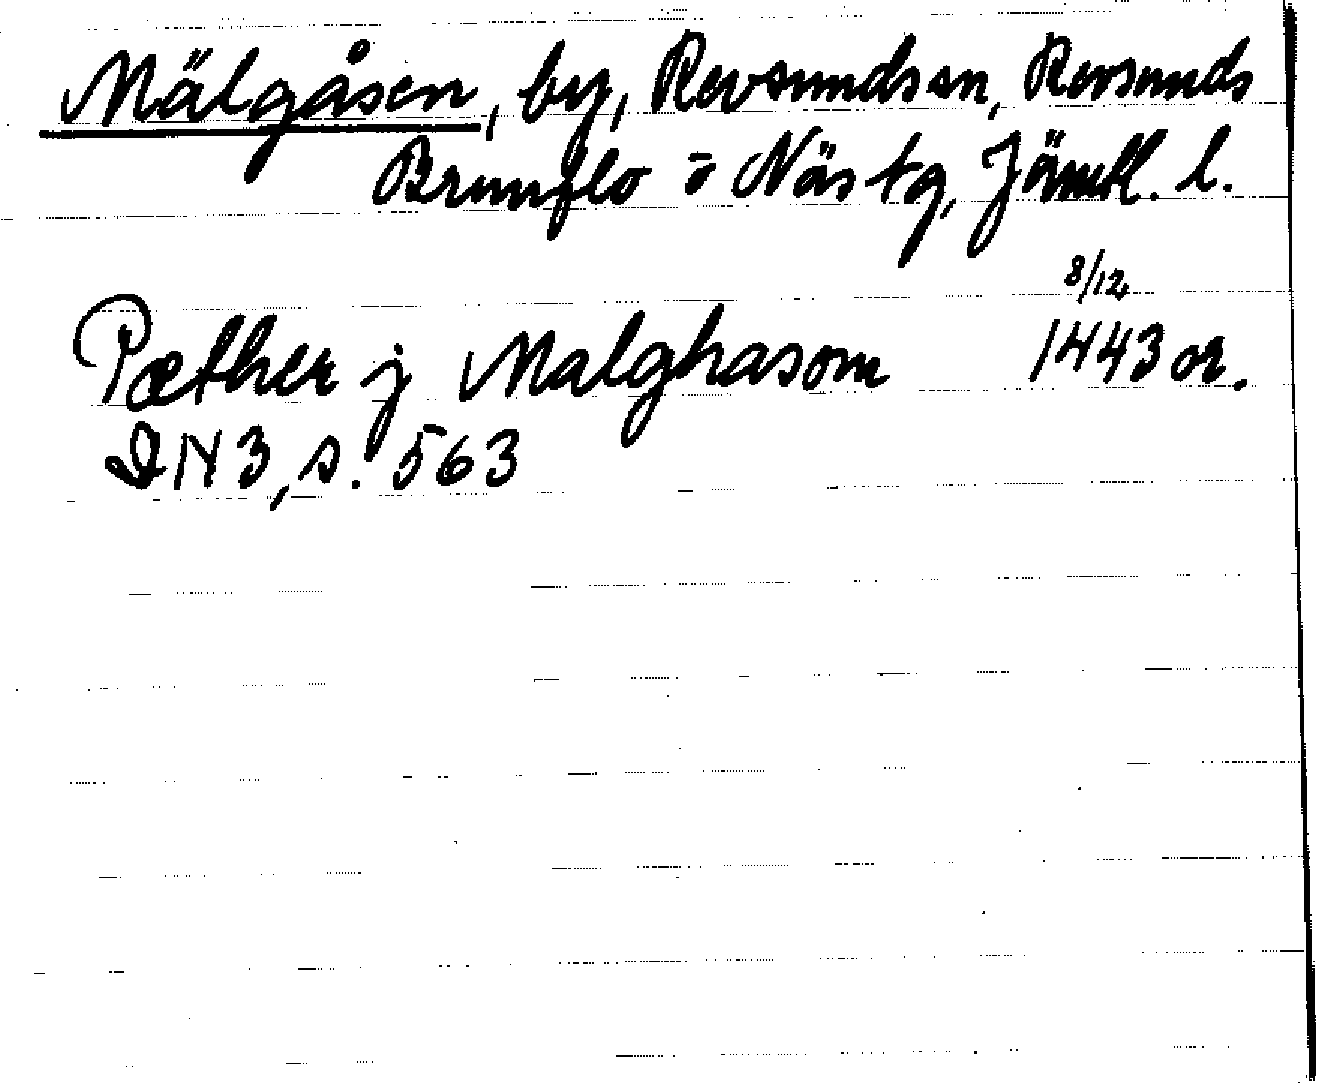 Mälgåsen, by, Revsunds sn, Revsunds
Brunflo o Näs tg, Jämtl. l.
8/12
Pæther j Malghasom 1443 or.
DN 3, s. 563